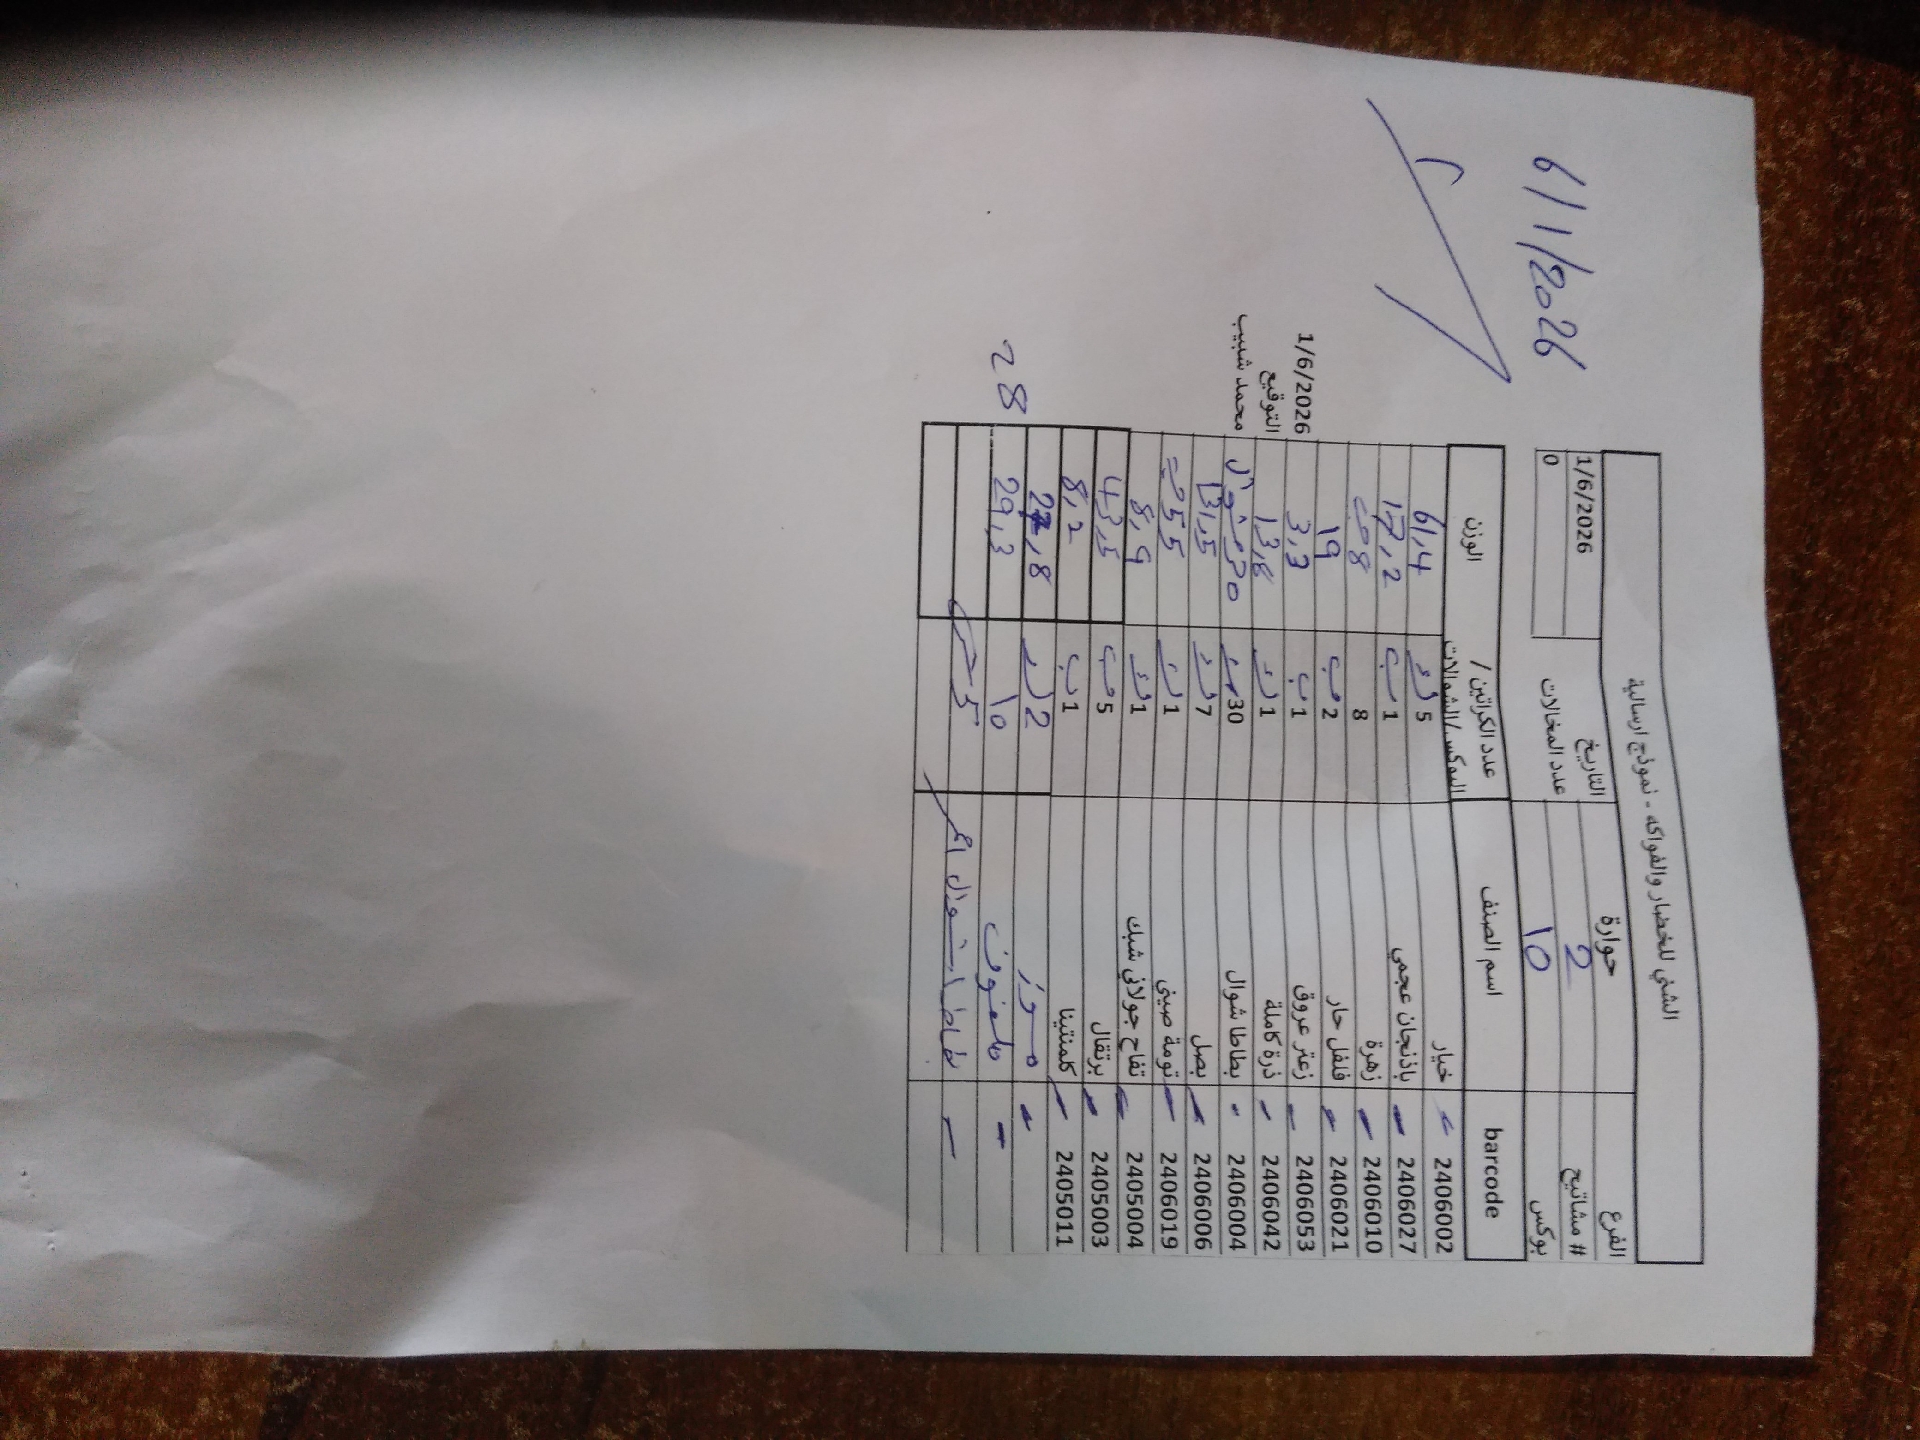 6/1/2026
الشني للخضار والفواكه - نموذج ارسالية
الفرع حوارة
# مشاتيح 2 التاريخ 1/6/2026
بوكس 10 عدد المخالات 0
barcode اسم الصنف عدد الكراتين / البوكس/الشوالات الوزن
2406002 خيار 5 61,4
2406027 باذنجان عجمي 1 ب 17,2
2406010 زهرة 8 8 حب
2406021 فلفل حار 2 ب 19
2406053 زعتر عروق 1 ب 3,3
2406042 ذرة كاملة 1 13,8
2406004 بطاطا شوال 30 30 شوال
2406006 بصل 7 131,5
2406019 تومة صيني 1 55 حب
2405004 تفاح جولاني شبك 1 8,9
2405003 برتقال 5 ب 43,5
2405011 كلمنتينا 1 ب 8,2
موز 2 27,8
ملفوف 10 29,3
بطاطا شوال 5
28
1/6/2026
التوقيع
محمد شبيب